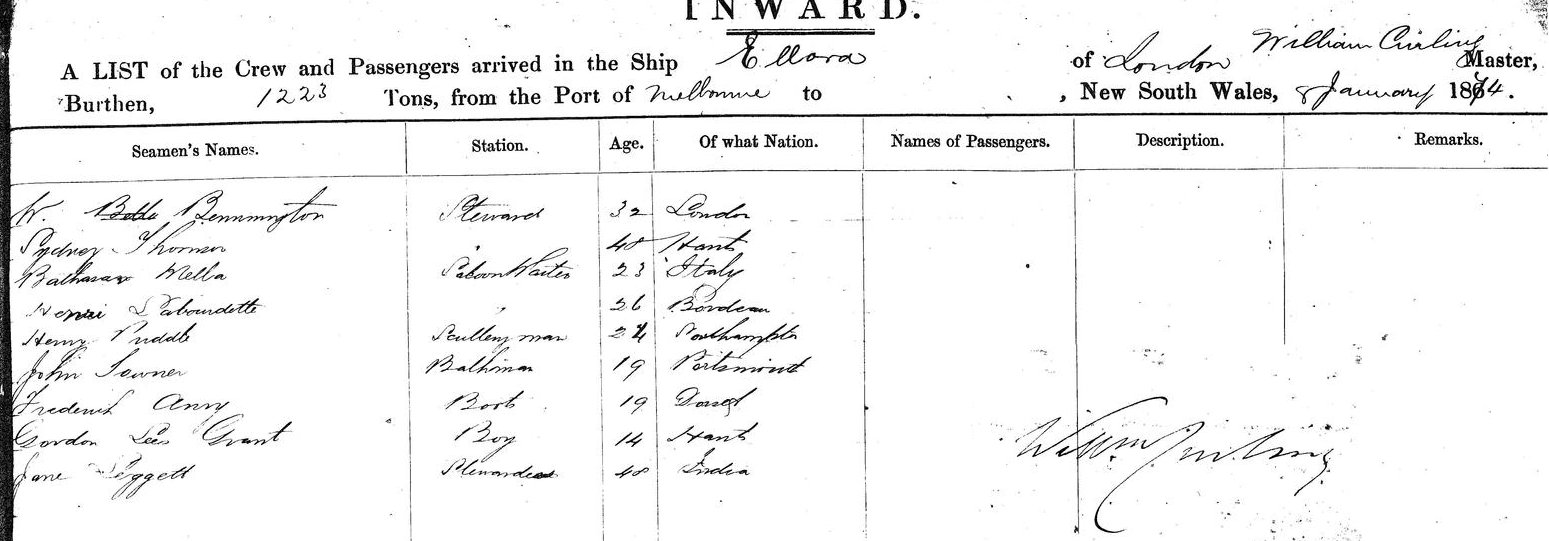 INWARD.
A LIST of the Crew and Passengers arrived in the Ship Ellora of London William Curling Master,
Burthen, 1223 Tons, from the Port of Melbourne to , New South Wales, 8 January 1874.
Seamen's Names. Station. Age. Of what Nation. Names of Passengers. Description. Remarks.
W. Bennington Steward 32 London
Sydney " 48 Hants
Mella Saloon Waiter 23 Italy
Henri Labourdette " 26 Bordeau
Henry Puddle Scullery man 24 Northampton
John Bathman 19 Portsmouth
Frederick 19 Dorset
Gordon Lees Grant Boy 14 Hants
Jane Leggett Stewardess 48 India
Willm Curling